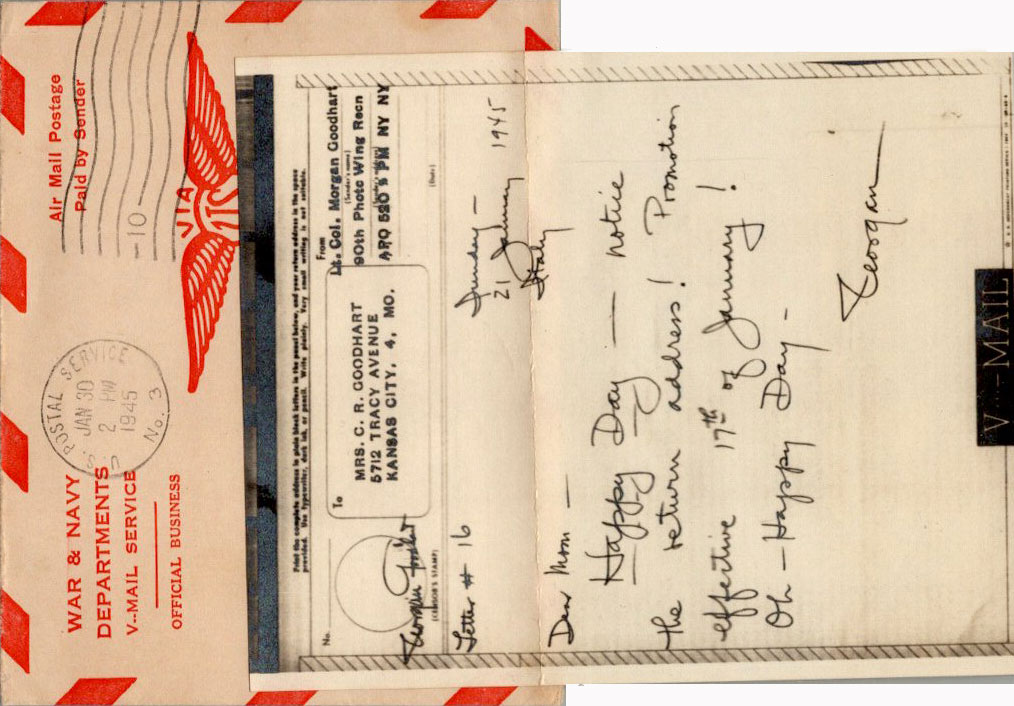 WAR & NAVY
DEPARTMENTS
V--MAIL SERVICE
OFFICIAL BUSINESS
U. S. POSTAL SERVICE
JAN 30
2 PM
1945
No. 3
-10-
Air Mail Postage
Paid by Sender
VIA
Print the complete address in plain block letters in the panel below, and your return address in the space
provided. Use typewriter, dark ink, or pencil. Write plainly. Very small writing is not suitable.
No.
(CENSOR'S STAMP)
To
MRS. C. R. GOODHART
5712 TRACY AVENUE
KANSAS CITY, 4, MO.
From
Lt. Col. Morgan Goodhart
(Sender's name)
90th Photo Wing Recn
(Sender's address)
APO 520 % PM NY NY
(Date)
Letter # 16
Sunday —
21 January 1945
Italy
Dear Mom —
Happy Day — notice
the return address! Promotion
effective 17th of January!
Oh — Happy Day —
V--MAIL